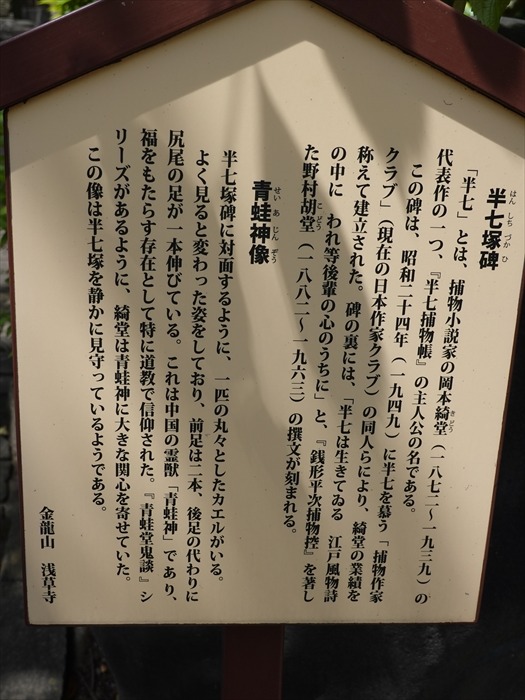 半七塚碑
はんしちづかひ
「半七」とは、捕物小説家の岡本綺堂（一八七二～一九三九）の
きどう
代表作の一つ、『半七捕物帳』の主人公の名である。
この碑は、昭和二十四年（一九四九）に半七を慕う「捕物作家
クラブ」（現在の日本作家クラブ）の同人らにより、綺堂の業績を
称えて建立された。碑の裏には、「半七は生きてゐる　江戸風物詩
の中に　われ等後輩の心のうちに」と、『銭形平次捕物控』を著し
た野村胡堂（一八八二～一九六三）の撰文が刻まれる。
こどう
青蛙神像
せいあじんぞう
半七塚碑に対面するように、一匹の丸々としたカエルがいる。
よく見ると変わった姿をしており、前足は二本、後足の代わりに
尻尾の足が一本伸びている。これは中国の霊獣「青蛙神」であり、
福をもたらす存在として特に道教で信仰された。『青蛙堂鬼談』シ
リーズがあるように、綺堂は青蛙神に大きな関心を寄せていた。
この像は半七塚を静かに見守っているようである。
金龍山　浅草寺